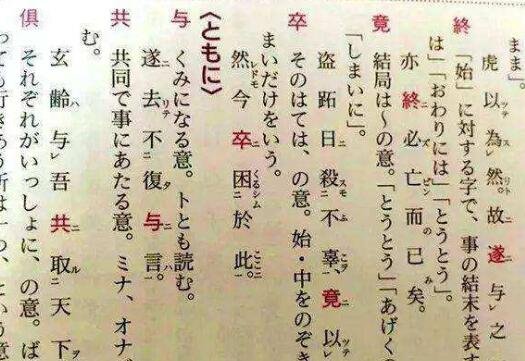 まま」。
虎以為然。故遂与之
終 「始」に対する字で、事の結末を表す
は」「おわりには」「とうとう」。
亦終必亡而已矣。
竟 結局は〜の意。「とうとう」「あげく
「しまいに」。
盗跖日殺不辜、竟以
卒 そのはては、の意。始・中をのぞき
まいだけをいう。
然今卒困於此。
〈ともに〉
与 くみになる意。トとも読む。
遂去不復与言。
共 共同で事にあたる意。ミナ、オナ
む。
玄齢与吾共取天下
俱 それぞれがいっしょに、の意。ば
っても行きあう所は一つ、という意